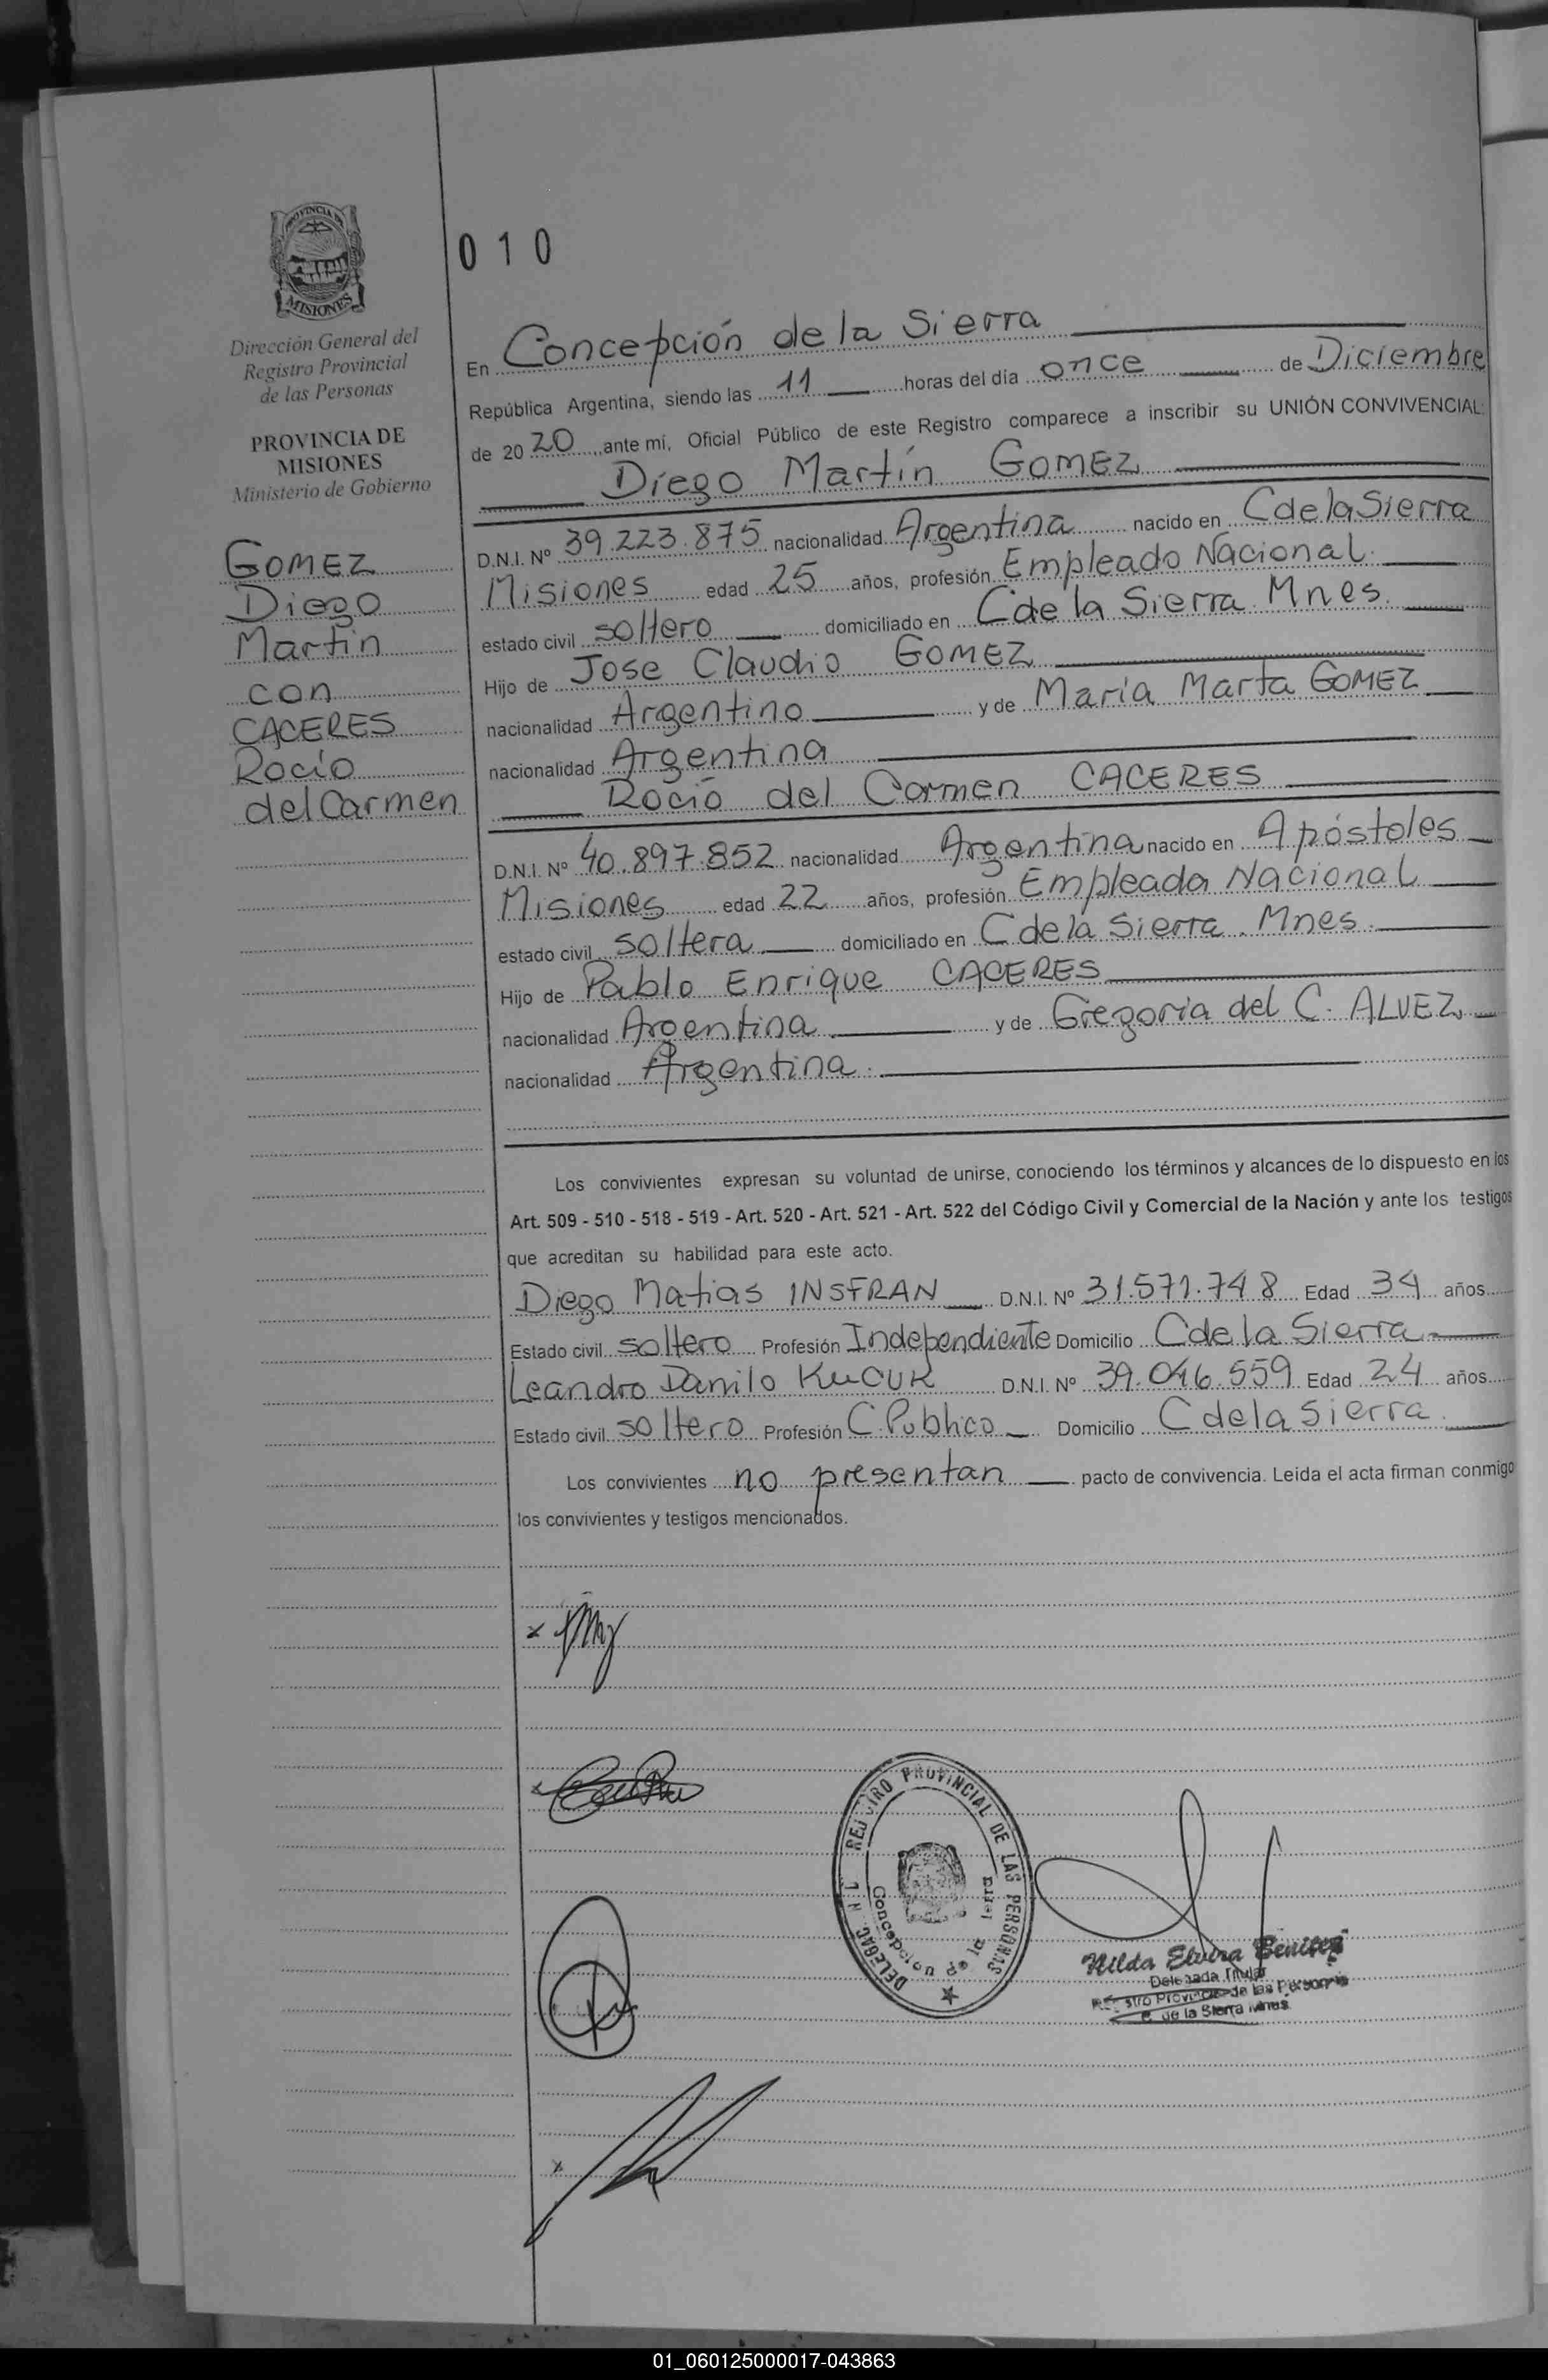 PROVINCIA DE
MISIONES
Dirección General del
Registro Provincial
de las Personas
PROVINCIA DE
MISIONES
Ministerio de Gobierno
GOMEZ
Diego
Martín
con
CACERES
Rocío
del Carmen
010
En Concepción de la Sierra
República Argentina, siendo las 11 horas del día once de Diciembre
de 20 20 ante mí, Oficial Público de este Registro comparece a inscribir su UNIÓN CONVIVENCIAL:
Diego Martín GOMEZ
D.N.I. Nº 39.223.875 nacionalidad Argentina nacido en C de la Sierra
Misiones edad 25 años, profesión Empleado Nacional.
estado civil soltero domiciliado en C de la Sierra. Mnes.
Hijo de Jose Claudio GOMEZ
nacionalidad Argentino y de María Marta GOMEZ
nacionalidad Argentina
Rocío del Carmen CACERES
D.N.I. Nº 40.897.852 nacionalidad Argentina nacido en Apóstoles
Misiones edad 22 años, profesión Empleada Nacional
estado civil soltera domiciliado en C de la Sierra. Mnes.
Hijo de Pablo Enrique CACERES
nacionalidad Argentina y de Gregoria del C. ALVEZ
nacionalidad Argentina.
Los convivientes expresan su voluntad de unirse, conociendo los términos y alcances de lo dispuesto en los
Art. 509 - 510 - 518 - 519 - Art. 520 - Art. 521 - Art. 522 del Código Civil y Comercial de la Nación y ante los testigos
que acreditan su habilidad para este acto.
Diego Matias INSFRAN D.N.I. Nº 31.571.748 Edad 34 años
Estado civil soltero Profesión Independiente Domicilio C de la Sierra
Leandro Danilo KUCUK D.N.I. Nº 39.046.559 Edad 24 años
Estado civil soltero Profesión C. Publico Domicilio C de la Sierra.
Los convivientes no presentan pacto de convivencia. Leída el acta firman conmigo
los convivientes y testigos mencionados.
REGISTRO PROVINCIAL DE LAS PERSONAS
Concepción de la
Nilda Elvira Benitez
Delegada Titular
Registro Provincial de las Personas
C. de la Sierra Mnes
01_060125000017-043863